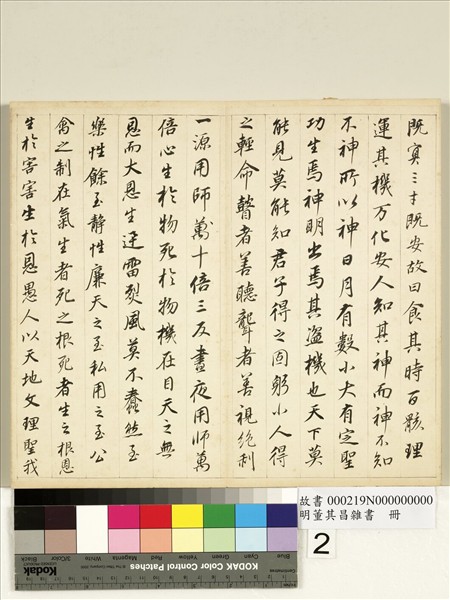 既宜三才既安故曰食其時百骸理
運其機万化安人知其神而神不知
不神所以神日月有數小大有定聖
功生焉神明出焉其盜機也天下莫
能見莫能知君子得之固躬小人得
之輕命瞽者善聽聾者善視絕利
一源用師萬十倍三反晝夜用師萬
倍心生於物死於物機在目天之無
恩而大恩生迅雷烈風莫不蠢然至
樂性餘至靜性廉天之至私用之至公
禽之制在氣生者死之根死者生之根恩
生於害害生於恩愚人以天地文理聖我
故書 000219N000000000
明董其昌雜書 冊
2
Blue Cyan Green Yellow Red Magenta White 3/Color Black
KODAK Color Control Patches
Kodak